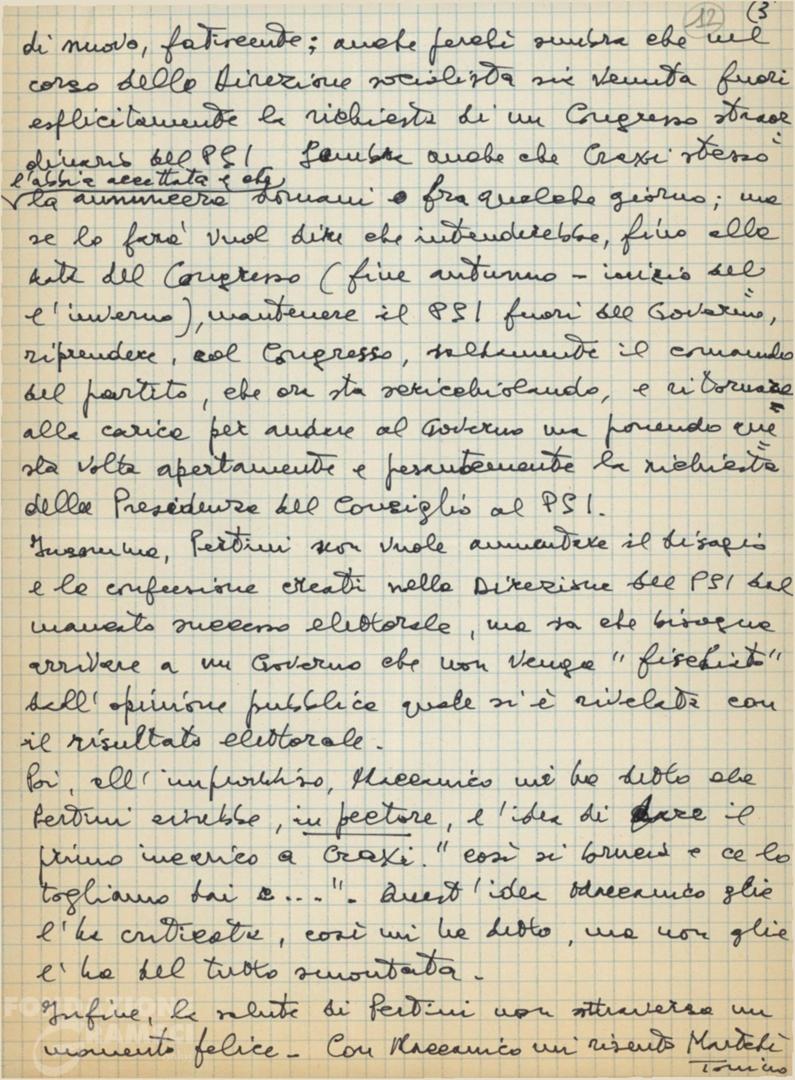 12 (3
di nuovo, fatiscente; anche perché sembra che nel
corso della Direzione socialista sia venuta fuori
esplicitamente la richiesta di un Congresso straor
dinario del PSI Sembra anche che Craxi stesso
l'abbia accettata e che
la annuncerà domani o fra qualche giorno; ma
se lo farà vuol dire che intenderebbe, fino alla
data del Congresso (fine autunno – inizio del
l'inverno), mantenere il PSI fuori del Governo,
riprendere, col Congresso, saldamente il comando
del partito, che ora sta scricchiolando, e ritornare
alla carica per andare al Governo ma ponendo que
sta volta apertamente e pesantemente la richiesta
della Presidenza del Consiglio al PSI.
Insomma, Pertini non vuole aumentare il disagio
e la confusione creati nella Direzione del PSI dal
mancato successo elettorale, ma sa che bisogna
arrivare a un Governo che non venga "fischiato"
dall'opinione pubblica quale si è rivelata con
il risultato elettorale.
Poi, all'improvviso, Maccanico mi ha detto che
Pertini avrebbe, in pectore, l'idea di dare il
primo incarico a Craxi. "così si brucia e ce lo
togliamo dai c...". Quest'idea Maccanico glie
l'ha criticata, così mi ha detto, ma non glie
l'ha del tutto smontata.
Infine, la salute di Pertini non attraversa un
momento felice – Con Maccanico mi risento Martedì
Tonino